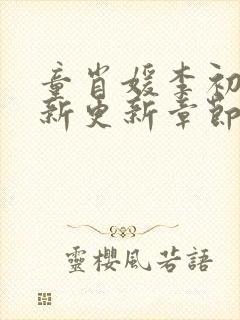 童肖媛李初
新更新章節
靈櫻風若語